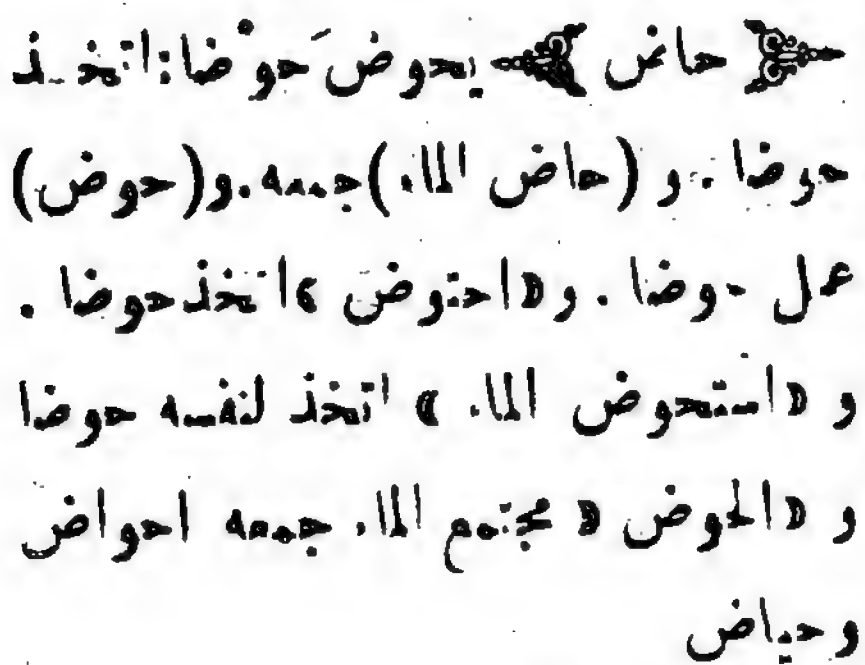 حاض يحوض حَوْضا: اتخذ
حوضا. و (حاض الماء) جمعه. و(حوض)
عمل حوضا. و«احتوض» اتخذ حوضا.
و «استحوض الماء» اتخذ لنفسه حوضا
و «الحوض» مجتمع الماء جمعه احواض
وحياض